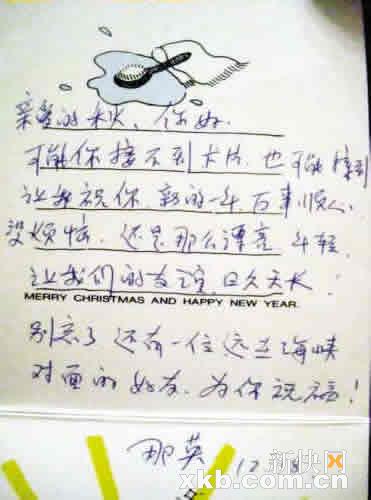 亲爱的秋、你好.
可能你接不到卡片.也可能接到
让我祝你.新的一年.万事顺心.
没烦恼.还是那么漂亮 年轻.
让我们的友谊.日久天长!
MERRY CHRISTMAS AND HAPPY NEW YEAR.
别忘了 还有一位远在海峡
对面的好友.为你祝福!
那英
12
新快网
xkb.com.cn